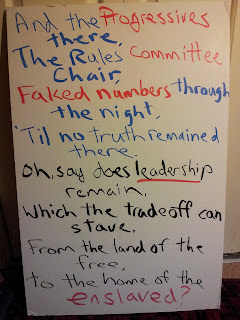 And the Progressives
there,
The Rules Committee
Chair,
Faked numbers through
the night,
'Til no truth remained
there.
Oh, say does leadership
remain,
Which the tradeoff can
stave,
From the land of the
free,
to the home of the
enslaved?